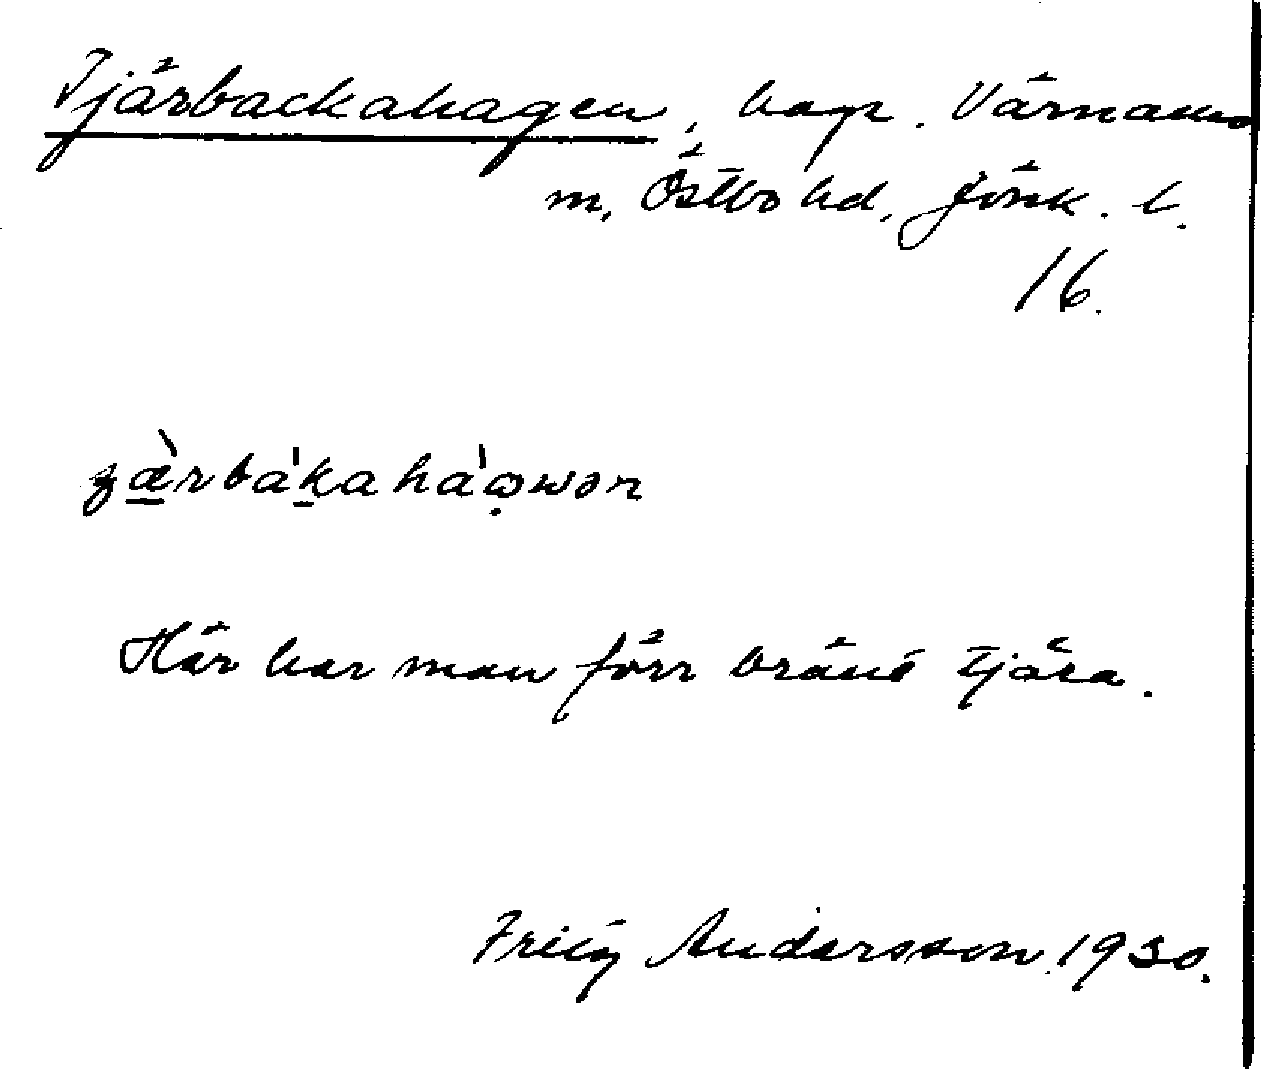 Tjärbackahagen, hage. Värnamo
m, Östbo hd, Jönk. l.
16.
Här har man förr bränt tjära.
Fritz Andersson 1930.